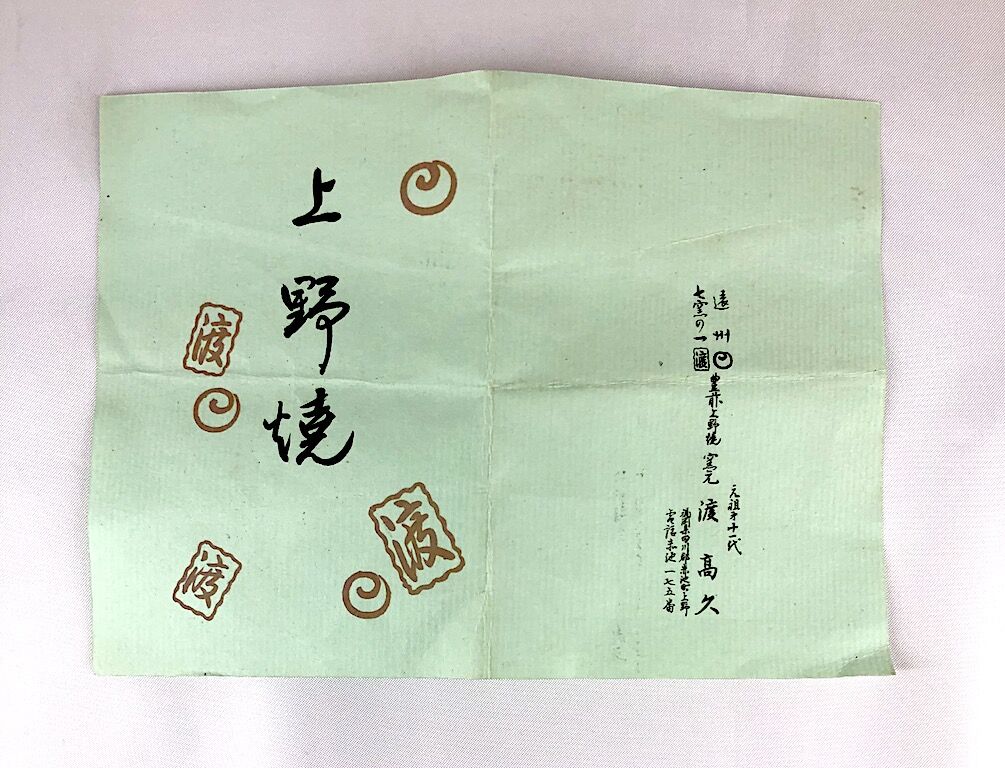 遠州
七窯の一
渡
豊前上野焼 窯元
元祖才十一代
渡 高久
福岡県田川郡赤池町上野
電話赤池一七五番
上野焼
渡
渡
渡